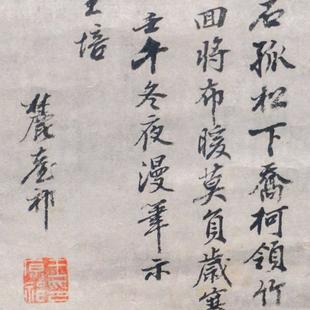 石孤松下喬柯領竹
回將布暖莫負歲寒
壬午冬夜漫筆示
王培
麓臺祁